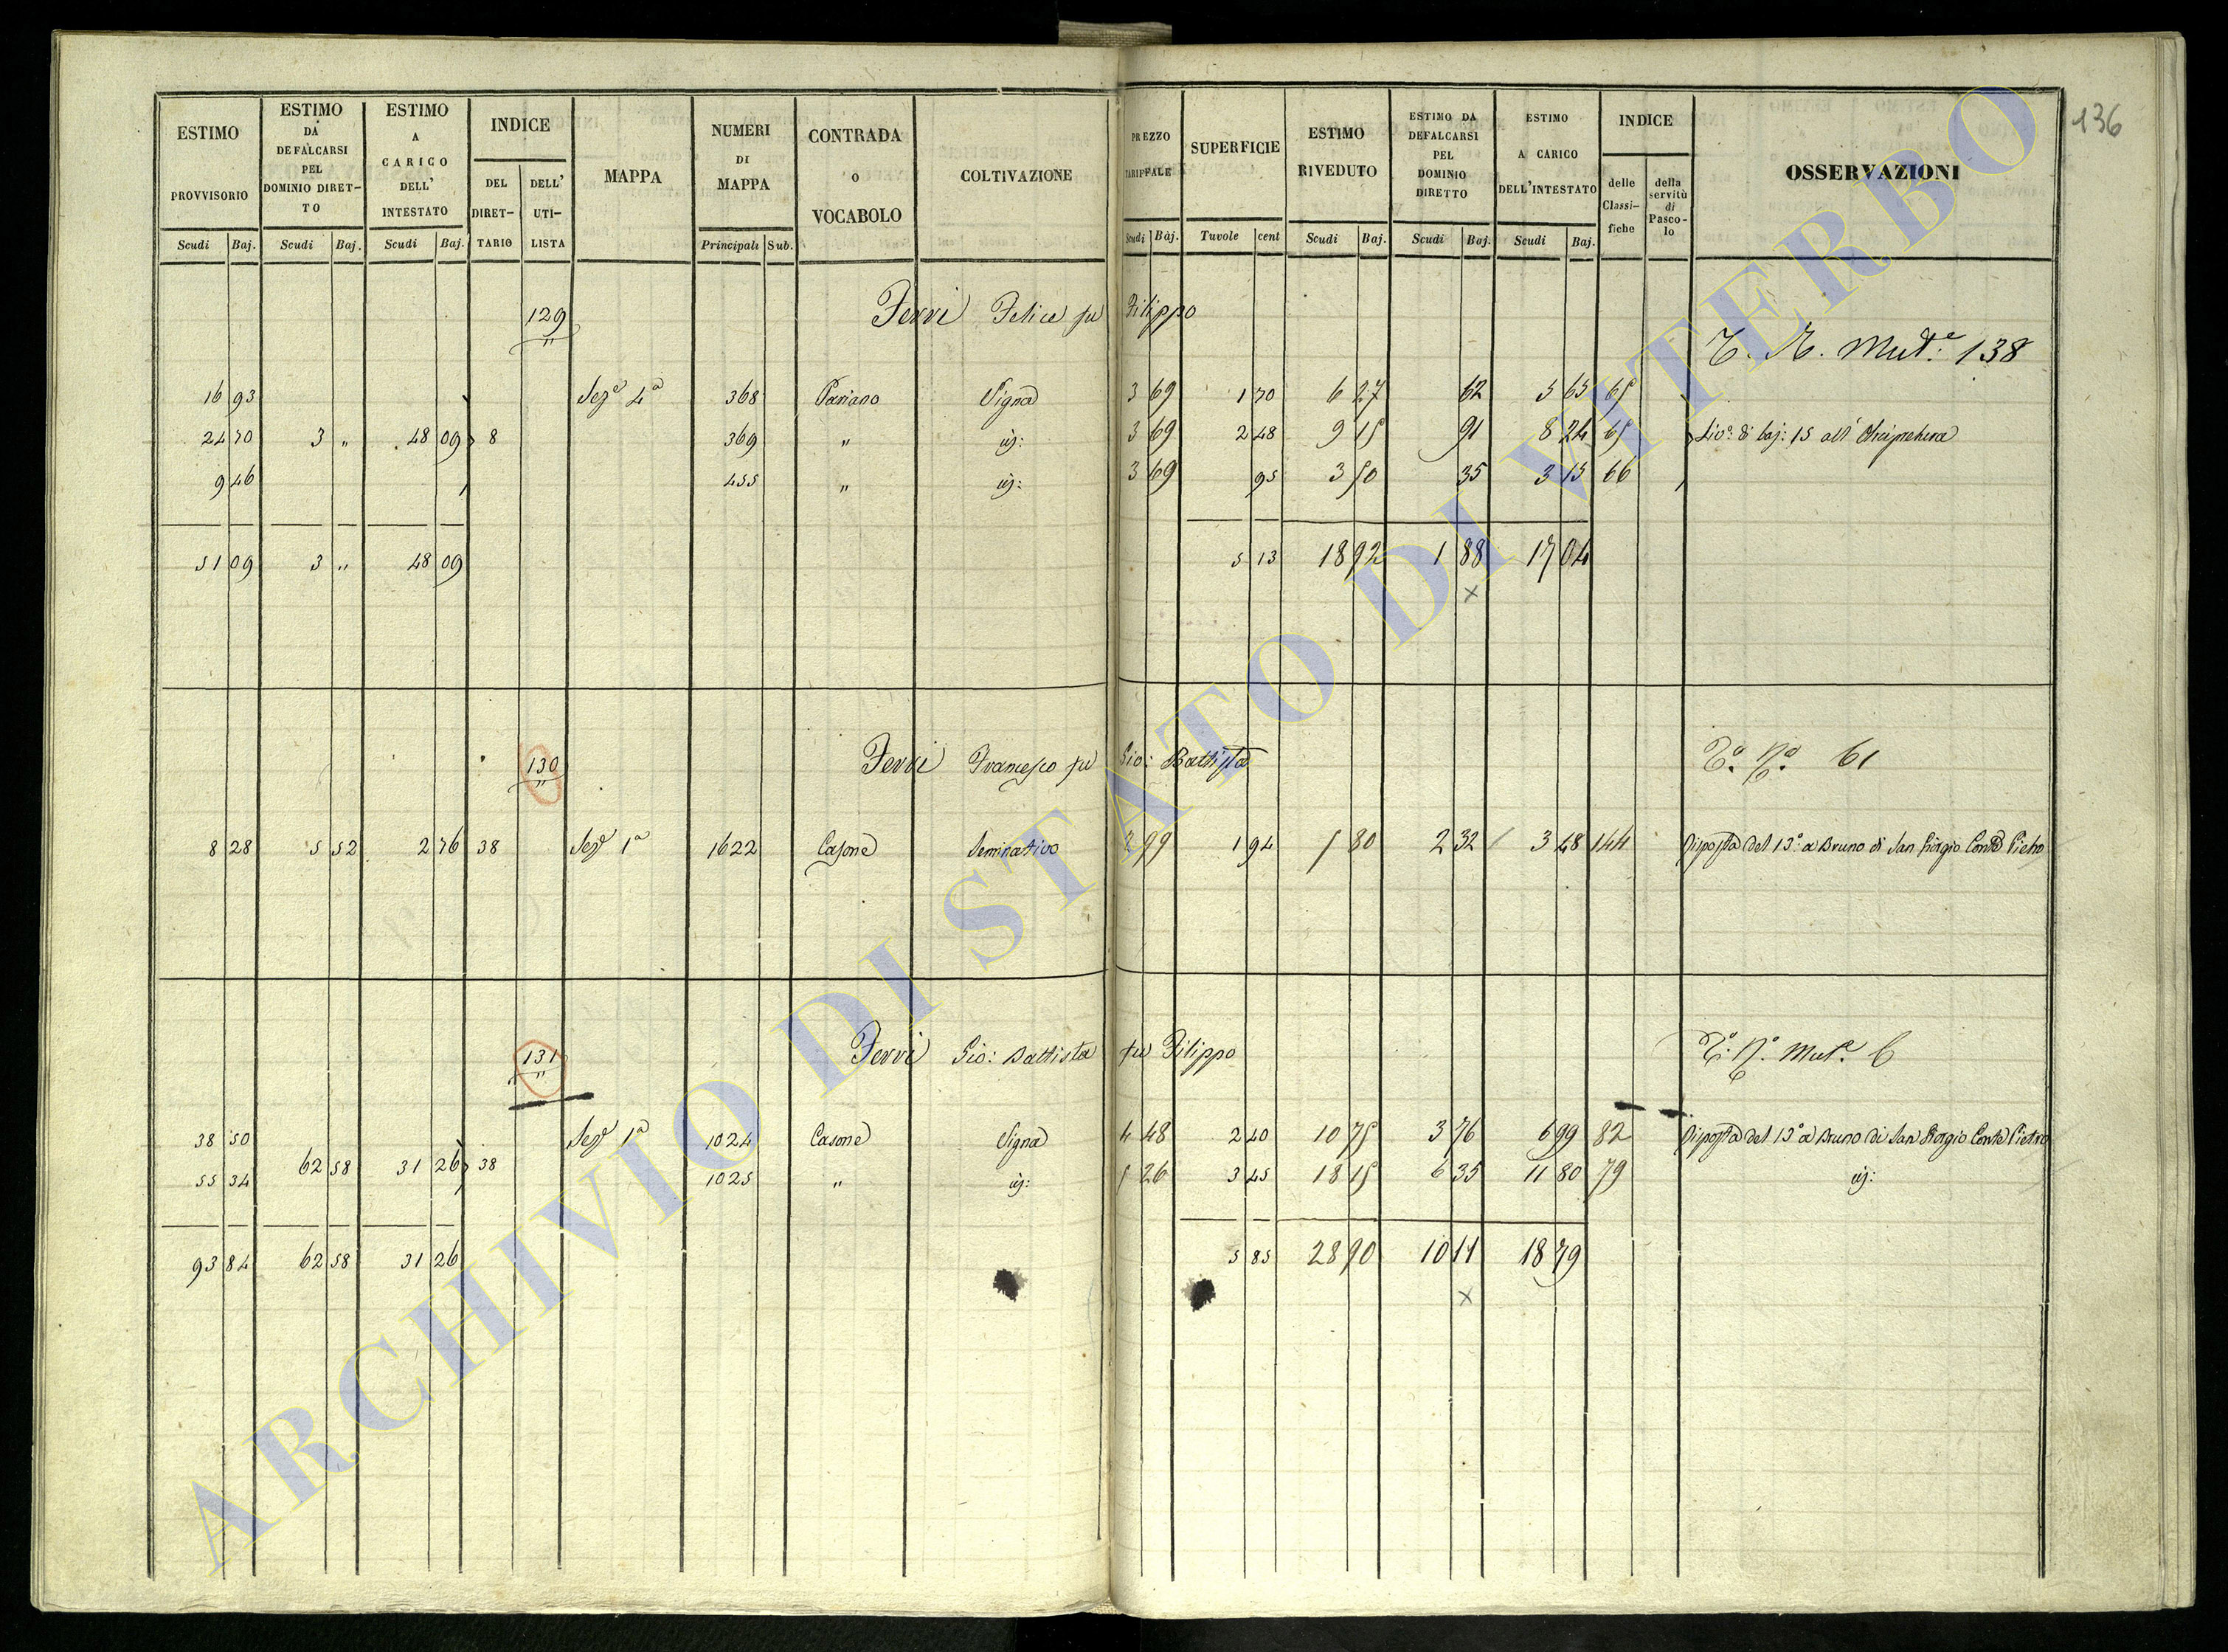 136
ESTIMO PROVVISORIO Scudi Baj.
ESTIMO DA DEFALCARSI PEL DOMINIO DIRETTO Scudi Baj.
ESTIMO A CARICO DELL' INTESTATO Scudi Baj.
INDICE DEL DIRETTARIO DELL' UTILISTA
MAPPA
NUMERI DI MAPPA Principali Sub.
CONTRADA O VOCABOLO
COLTIVAZIONE
PREZZO TARIFFALE Scudi Baj.
SUPERFICIE Tavole cent
ESTIMO RIVEDUTO Scudi Baj.
ESTIMO DA DEFALCARSI PEL DOMINIO DIRETTO Scudi Baj.
ESTIMO A CARICO DELL'INTESTATO Scudi Baj.
INDICE delle Classifiche della servitù di Pascolo
OSSERVAZIONI
129 Ferri Felice fu Filippo
Mut.e 138
16 93 Sez.e 4a 368 Pariano Vigna 3 69 1 70 6 27 62 5 65 65
24 70 3 " 48 09 8 369 " id: 3 69 2 48 9 15 91 8 24 65 Liv.o di baj: 15 all'
9 46 455 " id: 3 69 95 3 50 35 3 15 66
51 09 3 " 48 09 5 13 18 92 1 88 17 04
x
130 Ferri Francesco fu Gio: Battista 61
8 28 5 52 2 76 38 Sez.e 1a 1622 Casone Seminativo 2 99 1 94 5 80 2 32 3 48 144 Risposta del 13.o a Bruno di San Giorgio Conte Pietro
131 Ferri Gio: Battista fu Filippo
Mut.e 6
38 50 Sez.e 1a 1024 Casone Vigna 4 48 2 40 10 75 3 76 6 99 82 Risposta del 13.o a Bruno di San Giorgio Conte Pietro
55 34 62 58 31 26 38 1025 " id: 5 26 3 45 18 15 6 35 11 80 79 id:
93 84 62 58 31 26 5 85 28 90 10 11 18 79
x
ARCHIVIO DI STATO DI VITERBO